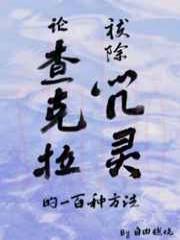 论
查克拉
祓除
咒灵
的一百种方法
By 自由燃烧